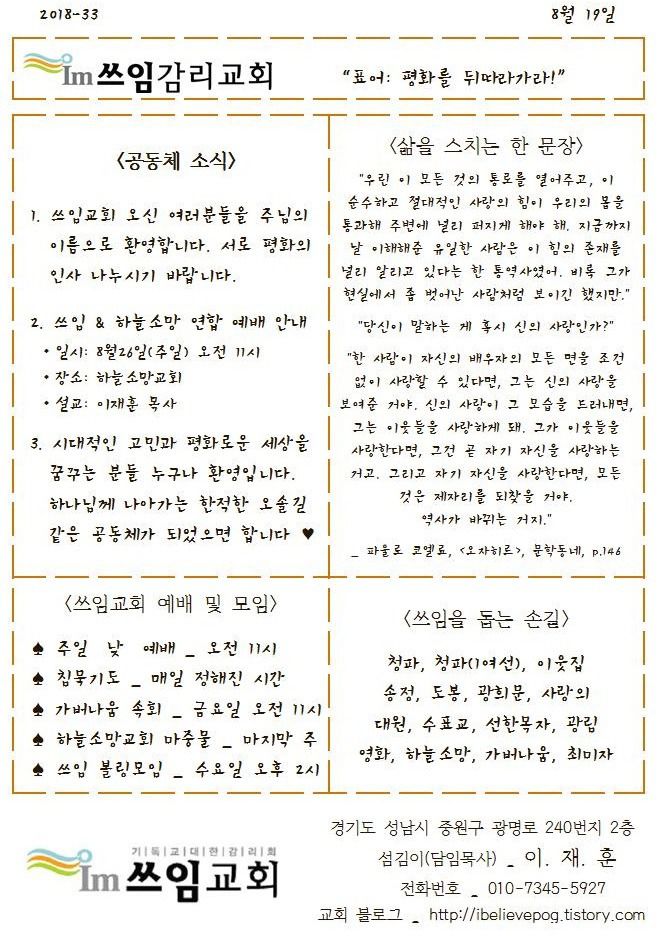 2018-33
8월 19일
Im 쓰임감리교회
“표어: 평화를 뒤따라가라!”
<공동체 소식>
1. 쓰임교회 오신 여러분들을 주님의
이름으로 환영합니다. 서로 평화의
인사 나누시기 바랍니다.
2. 쓰임 & 하늘소망 연합 예배 안내
• 일시: 8월26일(주일) 오전 11시
• 장소: 하늘소망교회
• 설교: 이재훈 목사
3. 시대적인 고민과 평화로운 세상을
꿈꾸는 분들 누구나 환영입니다.
하나님께 나아가는 한적한 오솔길
같은 공동체가 되었으면 합니다 ♥
<삶을 스치는 한 문장>
"우린 이 모든 것의 통로를 열어주고, 이
순수하고 절대적인 사랑의 힘이 우리의 몸을
통과해 주변에 널리 퍼지게 해야 해. 지금까지
날 이해해준 유일한 사람은 이 힘의 존재를
널리 알리고 있다는 한 통역사였어. 비록 그가
현실에서 좀 벗어난 사람처럼 보이긴 했지만."
"당신이 말하는 게 혹시 신의 사랑인가?"
"한 사람이 자신의 배우자의 모든 면을 조건
없이 사랑할 수 있다면, 그는 신의 사랑을
보여준 거야. 신의 사랑이 그 모습을 드러내면,
그는 이웃들을 사랑하게 돼. 그가 이웃들을
사랑한다면, 그건 곧 자기 자신을 사랑하는
거고. 그리고 자기 자신을 사랑한다면, 모든
것은 제자리를 되찾을 거야.
역사가 바뀌는 거지."
_ 파울로 코엘료, <오자히르>, 문학동네, p.146
<쓰임교회 예배 및 모임>
♠ 주일 낮 예배 _ 오전 11시
♠ 침묵기도 _ 매일 정해진 시간
♠ 가버나움 속회 _ 금요일 오전 11시
♠ 하늘소망교회 마중물 _ 마지막 주
♠ 쓰임 볼링모임 _ 수요일 오후 2시
<쓰임을 돕는 손길>
청파, 청파(1여선), 이웃집
송정, 도봉, 광희문, 사랑의
대원, 수표교, 선한목자, 광림
영화, 하늘소망, 가버나움, 최미자
기|독|교|대|한|감|리|회
Im 쓰임교회
경기도 성남시 중원구 광명로 240번지 2층
섬김이(담임목사) _ 이. 재. 훈
전화번호 _ 010-7345-5927
교회 블로그 _ http://ibelievepog.tistory.com